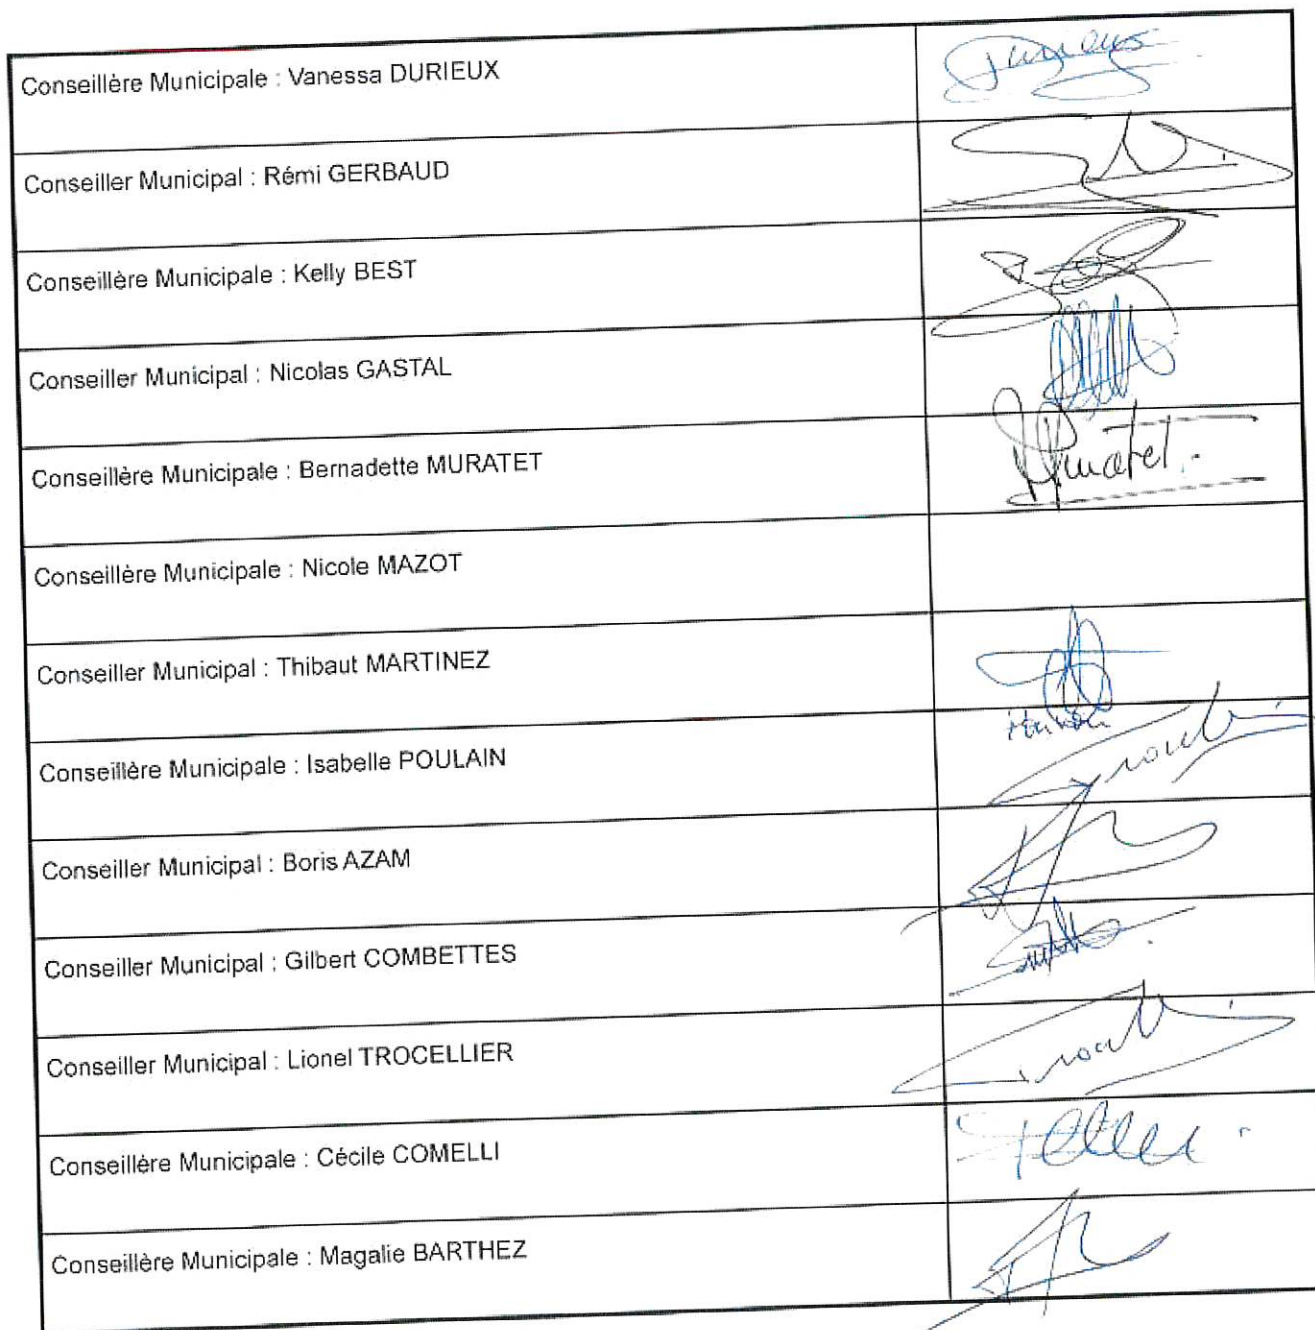 Conseillère Municipale : Vanessa DURIEUX
Durieux
Conseiller Municipal : Rémi GERBAUD
Conseillère Municipale : Kelly BEST
Conseiller Municipal : Nicolas GASTAL
Conseillère Municipale : Bernadette MURATET
Muratet
Conseillère Municipale : Nicole MAZOT
Conseiller Municipal : Thibaut MARTINEZ
Conseillère Municipale : Isabelle POULAIN
Conseiller Municipal : Boris AZAM
Conseiller Municipal : Gilbert COMBETTES
Conseiller Municipal : Lionel TROCELLIER
Conseillère Municipale : Cécile COMELLI
Conseillère Municipale : Magalie BARTHEZ